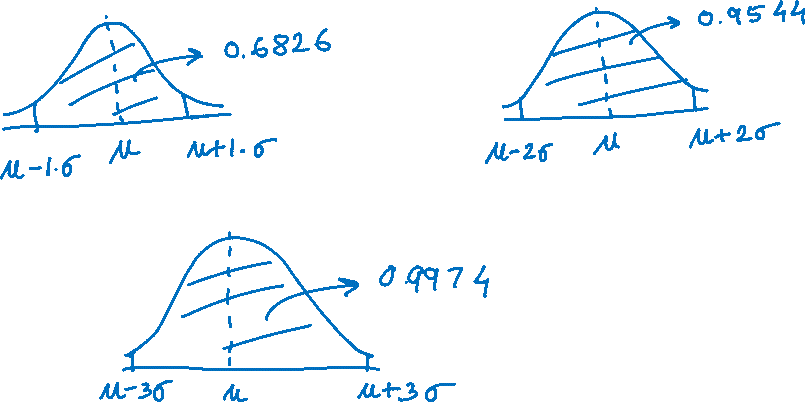 0.6826
μ-1.σ μ μ+1.σ
0.9544
μ-2σ μ μ+2σ
0.9974
μ-3σ μ μ+3σ